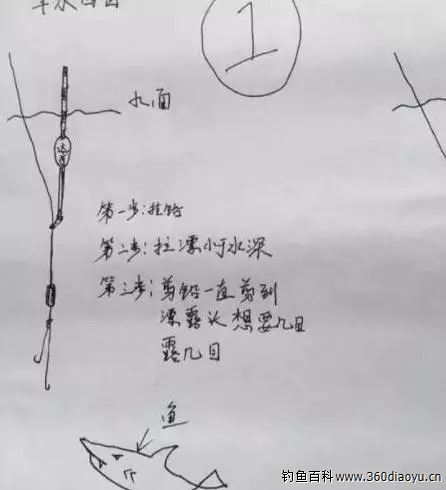 1
水面
第一步:挂铃
第二步:拉漂小于水深
第三步:剪铅一直剪到
漂露头想要几目
露几目
鱼
钓鱼百科www.360diaoyu.cn